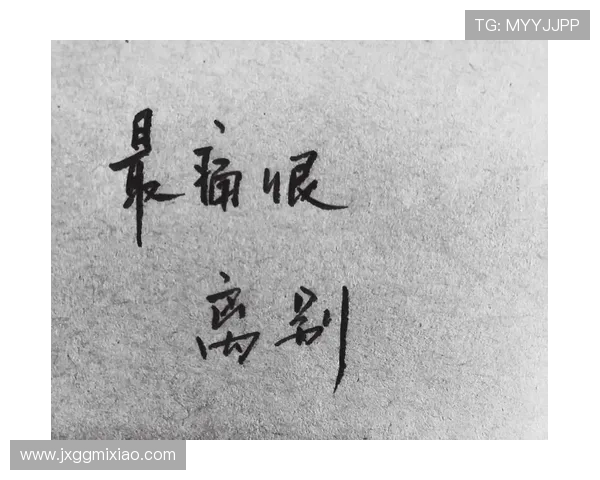 TG: MYYJJPP
最痛恨
离别
www.jxggmixiao.com